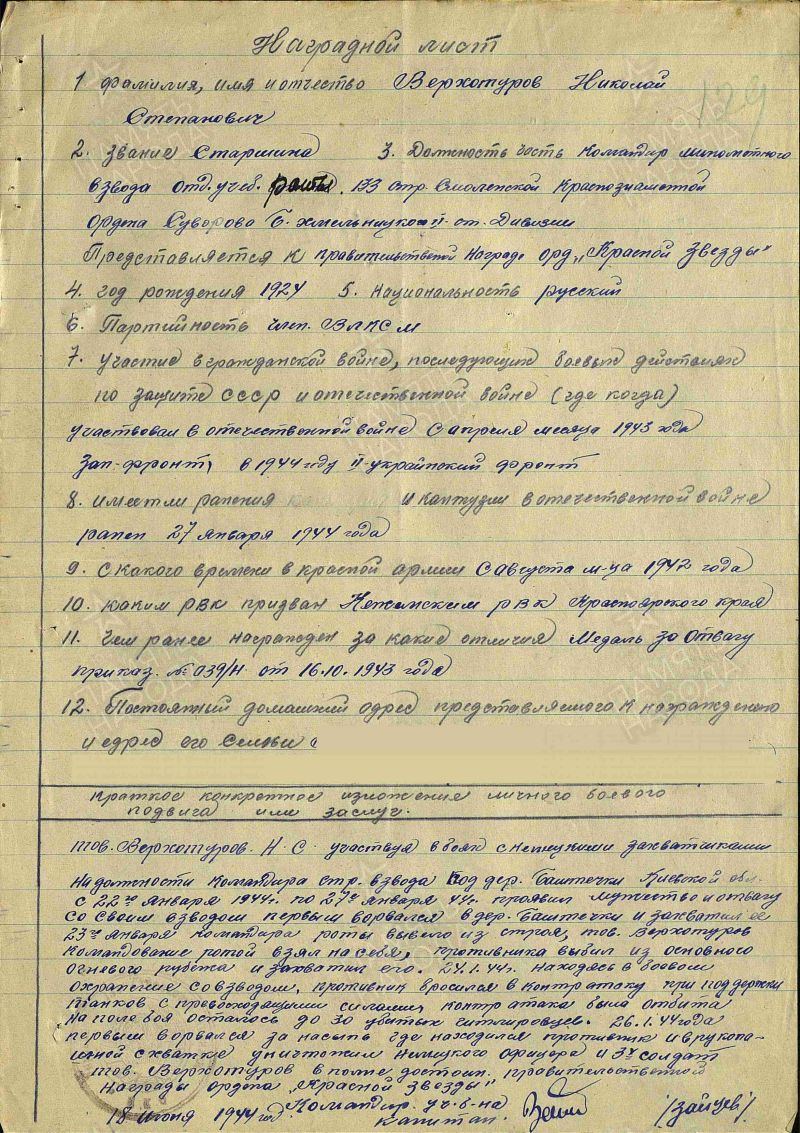 Наградной лист
129
1 фамилия, имя и отчество Верхотуров Николай
Степанович
2. Звание Старшина 3. Должность часть Командир минометного
взвода отд. учеб. роты. 133 стр. Смоленской Краснознаменной
Ордена Суворова Б. Хмельницкого II ст. Дивизии
Представляется к правительственой Награде орд. „Красной Звезды"
4. год рождения 1924 5. Национальность русский
6. Партийность член. ВЛКСМ
7. участие в гражданской войне, последующих боевых действиях
по защите СССР и отечественной войне (где когда)
участвовал в отечественной войне с апреля месяца 1943 года
Зап-фронт, в 1944 году II-украинский фронт
8. имеет ли ранения и контузии в отечественной войне
ранен 27 января 1944 года
9. с какого времени в красной армии с августа м-ца 1942 года
10. каким РВК призван РВК Красноярского края
11. Чем ранее награжден за какие отличия Медаль за Отвагу
приказ. № 039/Н от 16.10.1943 года
12. Постоянный домашний адрес представляемого к награждению
и адрес его Семьи
Краткое конкретное изложения личного боевого
подвига или заслуг.
тов. Верхотуров. Н. С. участвуя в боях с немецкими захватчиками
На должности командира стр. взвода под дер. Баштечки Киевской обл.
с 22го января 1944г. по 27е января 44г. проявил мужество и отвагу
Со своим взводом первым ворвался в дер. Баштечки и захватил ее
23го января командира роты вывело из строя, тов. Верхотуров
командование ротой взял на себя, противника выбил из основного
огневого рубежа и захватил его. 24.1.44г. находясь в боевом
охранение со взводом, противник бросился в контратаку при поддержки
танков с превосходящими силами, контратака была отбита
На поле боя осталось до 30 убитых гитлеровцев. 26.1.44 года
первым ворвался за насыпь где находился противник и в рукопа-
шной схватке уничтожил немецкого офицера и 3х солдат
тов. Верхотуров вполне достоин. правительственной
Награды ордена „Красной Звезды"
18 июня 1944 год. Командир. уч. б-на
капитан. /Зайцев/